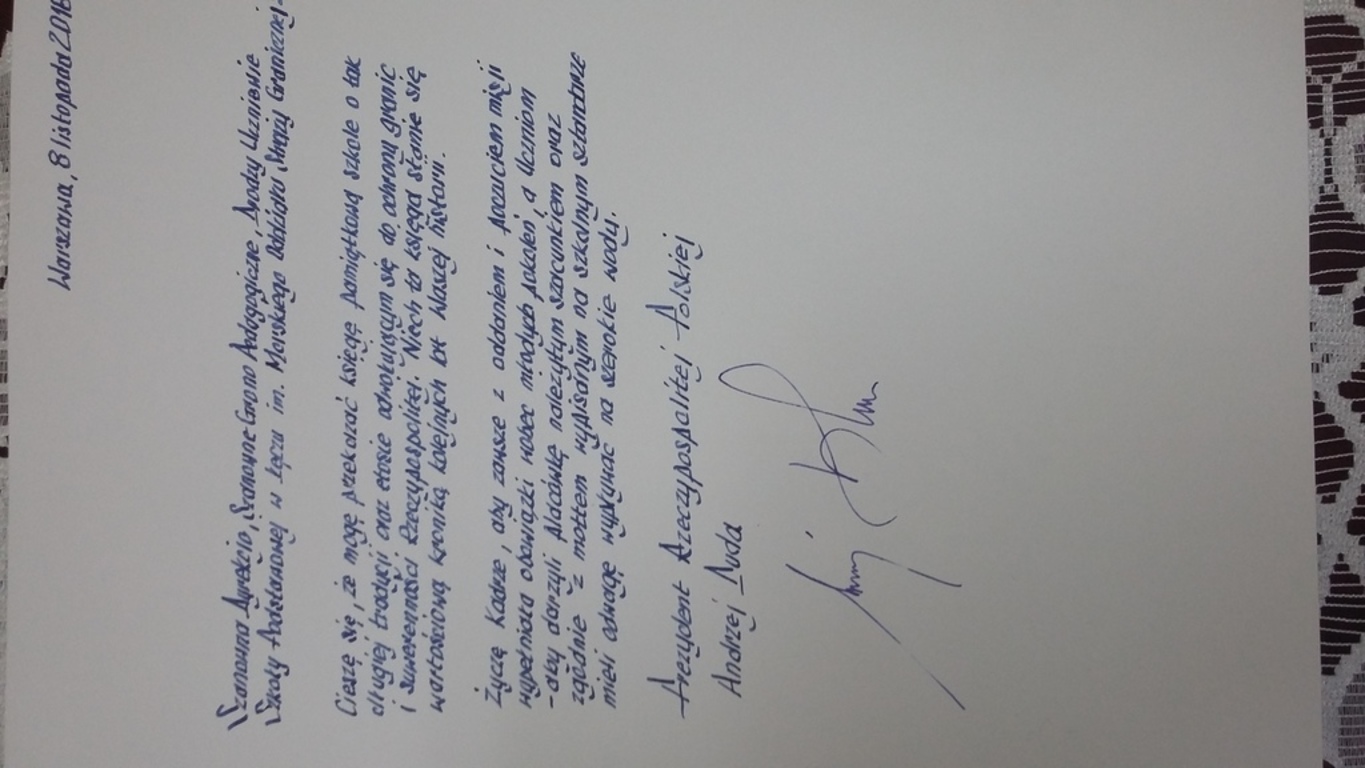 Warszawa, 8 listopada 2016
Szanowna Dyrekcjo, Szanowne Grono Pedagogiczne, Drodzy Uczniowie
Szkoły Podstawowej w Łęczu im. Morskiego Oddziału Straży Granicznej.
Cieszę się, że mogę przekazać księgę pamiątkową szkole o tak
długiej tradycji oraz etosie odwołującym się do ochrony granic
i suwerenności Rzeczypospolitej. Niech ta księga stanie się
wartościową kroniką kolejnych lat Waszej historii.
Życzę Kadrze, aby zawsze z oddaniem i poczuciem misji
wypełniała obowiązki wobec młodych pokoleń, a Uczniom
- aby darzyli Placówkę należytym szacunkiem oraz
zgodnie z mottem wypisanym na szkolnym sztandarze
mieli odwagę wypływać na szerokie wody.
Prezydent Rzeczypospolitej Polskiej
Andrzej Duda